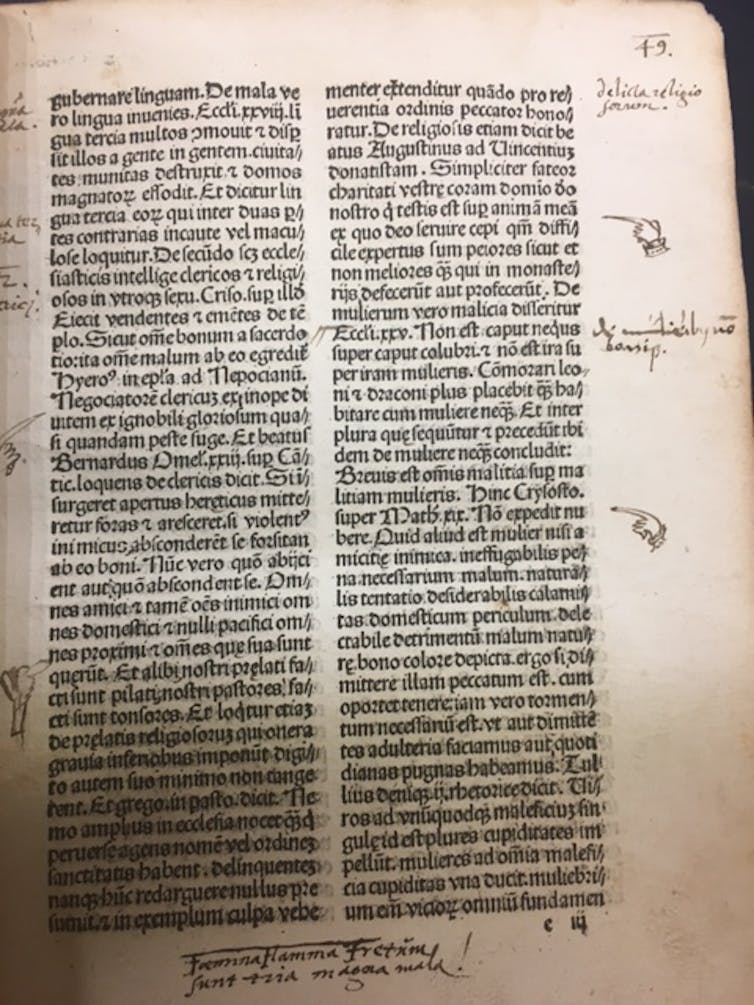 49.
gubernare linguam. De mala ve
ro lingua inuenies. Eccłi. xxviij. li
gua tercia multos ꝯmouit ⁊ disp
sit illos a gente in gentem. ciuita//
tes munitas destruxit ⁊ domos
magnatoꝝ effodit. Et dicitur lin
gua tercia eoꝝ qui inter duas ꝑ//
tes contrarias incaute vel macu//
lose loquitur. De secūdo scꝫ eccle//
siasticis intellige clericos ⁊ religi//
osos in vtroqꝫ sexu. Criso. sup illd̄
Eiecit vendentes ⁊ emētes de tē
plo. Sicut om̄e bonum a sacerdo
tio: ita om̄e malum ab eo egredit̄
Hyeroꝰ in ep̄la ad Nepocianū.
Negociatorē clericuꝫ ex inope di
uitem ex ignobili gloriosum qua//
si quandam peste fuge. Et beatus
Bernardus Omeł. xxiij. sup Cā//
tic. loquens de clericis dicit. Si ī
surgeret apertus hereticus mitte//
retur foras ⁊ aresceret. si violentꝰ
inimicus absconderēt se forsitan
ab eo boni. Nūc vero quō abijci
ent aut quō abscondent se. Om//
nes amici ⁊ tamē oēs inimici om
nes domestici ⁊ nulli pacifici om//
nes proximi ⁊ om̄es que sua sunt
querūt. Et alibi nostri prelati fa//
cti sunt pilati, nostri pastores fa//
cti sunt tonsores. Et loqͥtur etiaꝫ
de prelatis religiosoruꝫ qui onera
grauia inferiobus imponūt digi//
to autem suo minimo non tange
rent. Et grego. in pasto. dicit. Ne
mo amplius in ecclesia nocet qꝫ q̄
peruerse agens nomē vel ordineꝫ
sanctitatis habent. delinquenteꝫ
nanqꝫ hūc redarguere nullus pre
sumit. ⁊ in exemplum culpa vehe
menter extenditur quādo pro re//
uerentia ordinis peccator hono//
ratur. De religiosis etiam dicit be
atus Augustinus ad Uincentiuꝫ
donatistam. Simpliciter fateor
charitati vestre coram domio do
nostro q̄ testis est sup animā meā
ex quo deo seruire cepi qm̄ diffi//
cile expertus sum peiores sicut et
non meliores qꝫ qui in monaste//
rijs defecerūt aut profecerūt. De
mulierum vero malicia disseritur
Eccłi. xxv. Non est caput nequs
super caput colubri. ⁊ nō est ira su
per iram mulieris. Cōmorari leo//
ni ⁊ draconi plus placebit qꝫ ha//
bitare cum muliere neqꝫ. Et inter
plura que sequūtur ⁊ precedūt ibi
dem de muliere neqꝫ concludit:
Breuis est omnis malitia sup ma
litiam mulieris. Hinc Crysosto.
super Math. xix. Nō expedit nu
bere. Quid aliud est mulier nisi a
micitie inimica. ineffugabilis pe//
na. necessarium malum. natura//
lis tentatio desiderabilis calami//
tas. domesticum periculum. dele
ctabile detrimentū malum natu//
re. bono colore depicta. ergo si di//
mittere illam peccatum est. cum
oportet tenere; iam vero tormen//
tum necessariū est. vt aut dimittē
tes adulteria faciamus aut quoti
dianas pugnas habeamus. Tul//
lius deniqꝫ. ij. rhetorice dicit. Ui//
ros ad vnūquodqꝫ maleficiuꝫ sin
gule id est plures cupiditates im
pellūt. mulieres ad om̄ia malefi//
cia cupiditas vna ducit. muliebri//
um em̄ vicioꝝ omniū fundamen
e iij
delicta religio
sorum.
Fœmina Flamma Fretūm
sunt tria magna mala!